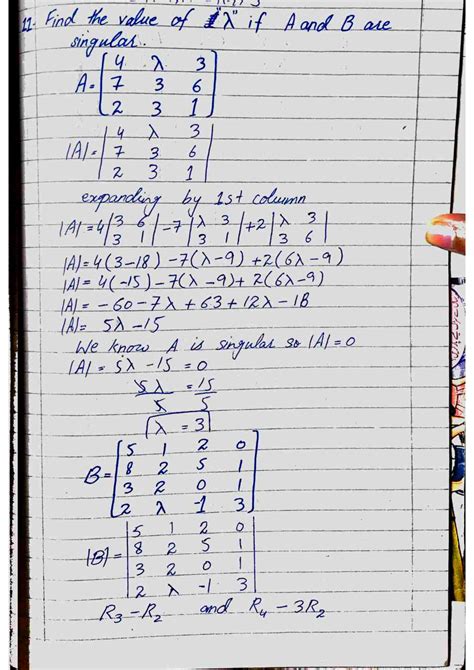 12. Find the value of "λ" if A and B are
singular.
A = [4 λ 3
7 3 6
2 3 1]
|A| = |4 λ 3
7 3 6
2 3 1|
expanding by 1st column
|A| = 4|3 6 -7|λ 3 +2|λ 3
3 1| 3 1| 3 6|
|A| = 4(3-18) -7(λ-9) +2(6λ-9)
|A| = 4(-15) -7(λ-9) + 2(6λ-9)
|A| = -60 -7λ + 63 + 12λ - 18
|A| = 5λ - 15
We know A is singular so |A| = 0
|A| = 5λ - 15 = 0
5λ = 15
5 5
λ = 3
B = [5 1 2 0
8 2 5 1
3 2 0 1
2 λ -1 3]
|B| = |5 1 2 0
8 2 5 1
3 2 0 1
2 λ -1 3|
R3 - R2 and R4 - 3R2